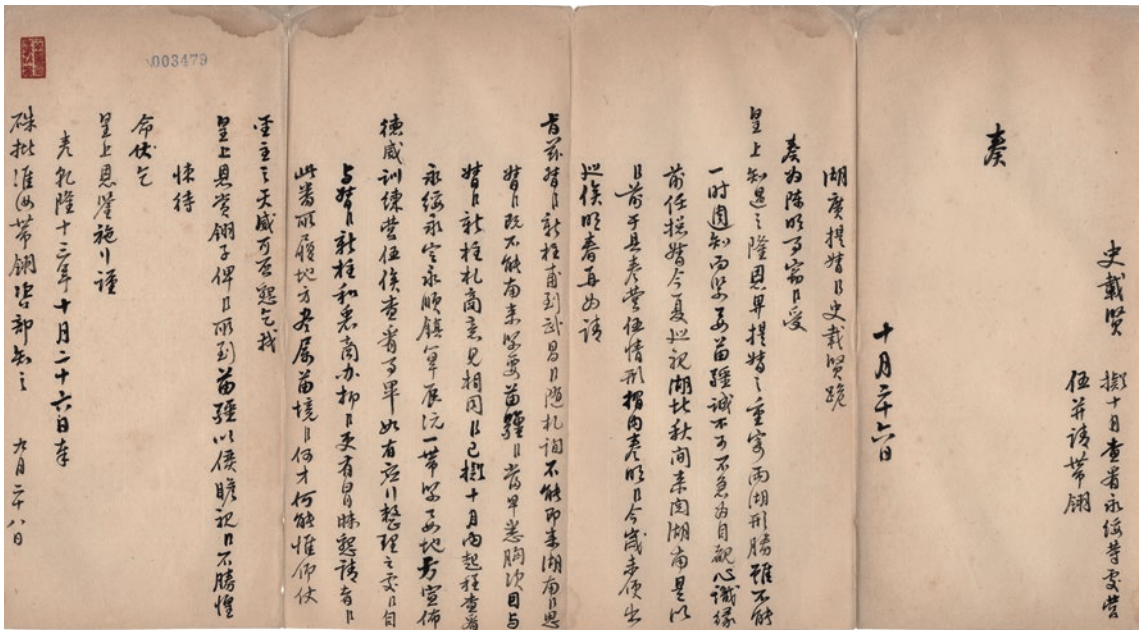 史載賢 擬十月查看永綏等處營
伍并請帶翎
十月二十六日
奏
湖廣提督臣史載賢跪
奏為陳明事竊臣受
皇上知遇之隆恩畀提督之重寄兩湖形勝雖不能
一時周知而緊要苗疆誠不可不急為目覩心識緣
前任提督今夏巡視湖北秋間未閱湖南是以
臣前于具奏營伍情形摺內奏明臣今歲未便出
巡俟明春再為請
旨茲督臣新柱甫到武昌臣隨札詢不能即來湖南臣思
督臣既不能南來緊要苗疆臣當早悉胸次因與
督臣新柱札商意見相同臣已擬十月內起程查看
永綏永定永順鎮筸辰沅一帶緊要地方宣佈
德威訓練營伍俟查看事畢如有應行整理之處臣自
與督臣新柱和衷商办抑臣更有冒昧懇請者臣
此番所履地方盡屬苗境臣何才何能惟仰仗
聖主之天威可否懇乞我
皇上恩賞翎子俾臣所到苗疆以傒瞻視臣不勝惶
悚待
命伏乞
皇上恩鑒施行謹
奏乾隆十三年十月二十六日奉
硃批准汝帶翎咨部知之 九月二十八日
003479